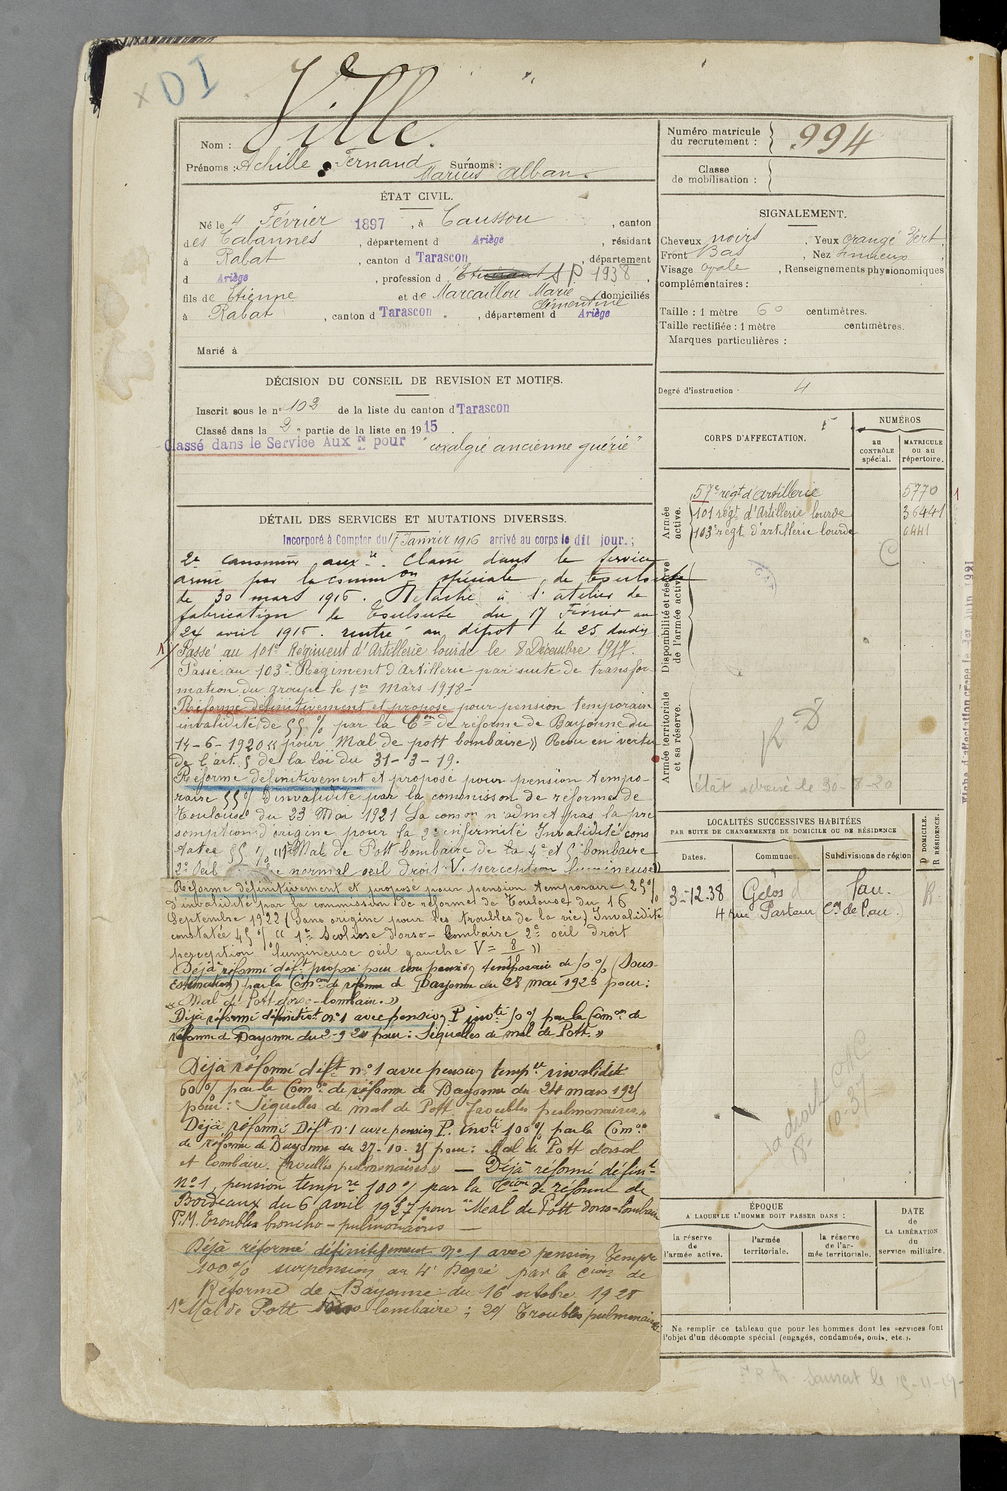 DI
Ville
Nom :
Prénoms : Achille Fernand Surnoms :
Marius Alban
ÉTAT CIVIL.
Né le 4 Février 1897, à Caussou, canton
des Cabannes, département d Ariège, résidant
à Rabat, canton d Tarascon, département
d Ariège, profession d S.P. 1938
fils de Etienne et de Marcaillou Marie Clémentine domiciliés
à Rabat, canton d Tarascon, département d Ariège
Marié à
DÉCISION DU CONSEIL DE REVISION ET MOTIFS.
Inscrit sous le n° 103 de la liste du canton d Tarascon
Classé dans la 2e partie de la liste en 1915.
Classé dans le Service Aux re pour "coxalgie ancienne guérie"
DÉTAIL DES SERVICES ET MUTATIONS DIVERSES.
Incorporé à Compter du 7 Janvier 1916 arrivé au corps le dit jour.;
2e canonnier auxre. Classé dans le service
armé par la common spéciale de Toulouse
de 30 mars 1916. Détaché à l'atelier de
fabrication de Toulouse du 17 Février au
24 avril 1916. rentré au dépôt le 25 dudit
Passé au 101e Régiment d'Artillerie lourde le 8 Décembre 1917.
Passé au 103e Régiment d'Artillerie par suite de transfor-
mation du groupe le 1er Mars 1918-
Réformé définitivement et proposé pour pension temporaire
invalidité de 55 % par la Con de réforme de Bayonne du
14-6-1920 « pour Mal de pott lombaire » Revu en vertu
de l'art. 5 de la loi du 31-3-19.
Réformé définitivement et proposé pour pension tempo-
raire 55 % d'invalidité par la commission de réforme de
Toulouse du 23 Mai 1921 La comon n'admet pas la pré
somption d'origine pour la 2e infirmité Invalidité cons
tatée 55 % « 1° Mal de Pott lombaire de la 4e et 5e lombaire
2° œil normal œil droit V: perception lumineuse »
Réformé définitivement et proposé pour pension temporaire 25 %
d'invalidité par la commission de réforme de Toulouse du 16
Septembre 1922 (Sans origine pour les troubles de la vie) Invalidité
constatée 45 % « 1° Scoliose dorso-lombaire 2° œil droit
perception lumineuse œil gauche V = 8/10 »
Déjà réformé déft proposé pour une pension temporaire de 10 % (Sous-
Estimation) par la Comon de réforme de Bayonne du 28 mai 1923 pour:
« Mal de Pott dorso-lombaire. »
Déjà réformé définitivt n°1 avec pension P. invté 10 % par la Comon de
réforme de Bayonne du 2-9 24 pour: Séquelles de mal de Pott. »
Déjà réformé déft n°1 avec pension tempre invalidité
60 % par la Comon de réforme de Bayonne du 24 mars 1925
pour: "Séquelles de mal de Pott Troubles pulmonaires »
Déjà réformé Déft n°1 avec pension P. invté 100 % par la Comon
de réforme de Bayonne du 27-10-25 pour: Mal de Pott dorsal
et lombaire, troubles pulmonaires » — Déjà réformé défint
N°1, pension tempre 100 % par la Con de réforme de
Bordeaux du 6 avril 1927 pour "Mal de Pott dorso-lombaire
P.M. troubles broncho-pulmonaires —
Déjà réformé définitivement n°1 avec pension tempre
100 % surpension au 4e Degré par la Con de
Réforme de Bayonne du 16 octobre 1928
1° Mal de Pott lombaire; 2°/ Troubles pulmonaires
Numéro matricule
du recrutement : 994
Classe
de mobilisation :
SIGNALEMENT.
Cheveux noirs. Yeux orangé Vert.
Front Bas, Nez
Visage ovale, Renseignements physionomiques
complémentaires :
Taille : 1 mètre 60 centimètres.
Taille rectifiée : 1 mètre centimètres.
Marques particulières :
Degré d'instruction : 4
CORPS D'AFFECTATION.
NUMÉROS
au
CONTRÔLE
spécial.
MATRICULE
ou au
répertoire.
Armée
active.
57e régt d'artillerie 5770
101 régt d'Artillerie lourde 36441
103e régt d'artillerie lourde 6441
Disponibilité et réserve
de l'armée active.
Armée territoriale
et sa réserve.
R D
Etat adressé le 30-8-20
LOCALITÉS SUCCESSIVES HABITÉES
PAR SUITE DE CHANGEMENTS DE DOMICILE OU DE RÉSIDENCE
Dates.
Communes.
Subdivisions de région
D DOMICILE.
R RÉSIDENCE.
3-12.38 Gelos Pau. R
4 rue Pasteur Con de Pau.
ÉPOQUE
A LAQUELLE L'HOMME DOIT PASSER DANS :
la réserve
de
l'armée active.
l'armée
territoriale.
la réserve
de l'ar-
mée territoriale.
DATE
de
LA LIBÉRATION
du
service militaire.
Ne remplir ce tableau que pour les hommes dont les services font
l'objet d'un décompte spécial (engagés, condamnés, omis, etc.).